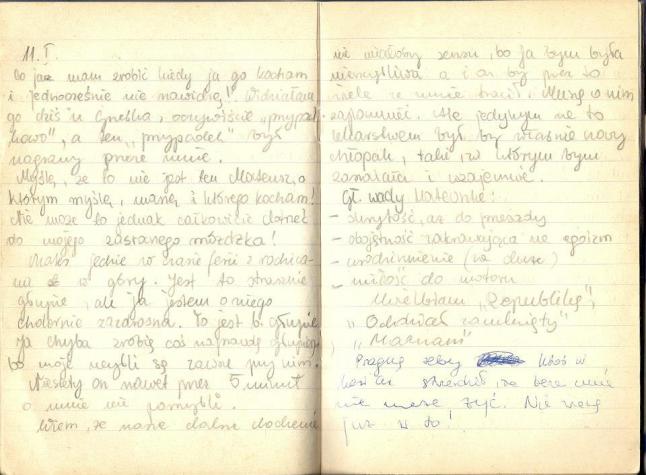 11.I.
Co ja mam zrobić kiedy ja go kocham
i jednocześnie nie nawidzę! Widziałam
go dziś u Gneska, oczywiście „przypad
kowo”, a ten „przypadek” był
nagrany przeze mnie.
Myślę, że to nie jest ten Mateusz, o
którym myślę, marzę i którego kocham!
Nie może to jednak całkowicie dotrzeć
do mojego zasranego móżdżka!
jedzie w czasie ferii z rodzica-
mi w góry. Jest to strasznie
głupie, ale ja jestem o niego
cholernie zazdrosna. To jest b. głupie
Ja chyba zrobię coś naprawdę głupiego
bo moje myśli są zawsze przy nim.
Niestety on nawet przez 5 minut
o mnie nie pomyśli.
Wiem, że nasze dalsze chodzenie
nie miałoby sensu, bo ja bym była
nieszczęśliwa a i on by przez to
wiele ze mnie tracił. Muszę o nim
zapomnieć. Ale jedynym na to
lekarstwem był by właśnie nowy
chłopak, taki, w którym bym
się zakochała i wzajemnie.
Gł. wady Mateuszka:
- skrytość, aż do przesady
- obojętność zakrawająca na egoizm
- (za duże)
- miłość do motoru
Uwielbiam „Republikę”,
„Oddział zamknięty”
„Maanam”
Pragnę żeby ktoś w
końcu stwierdził, że beze mnie
nie może żyć. Nie wierzę
już w to!